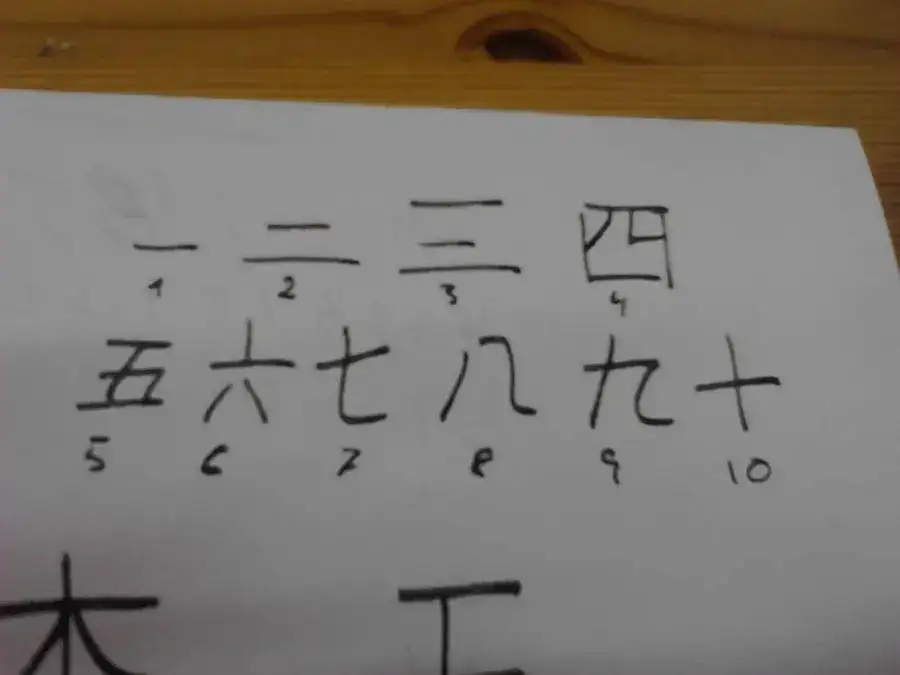 一 二 三 四
1 2 3 4
五 六 七 八 九 十
5 6 7 8 9 10